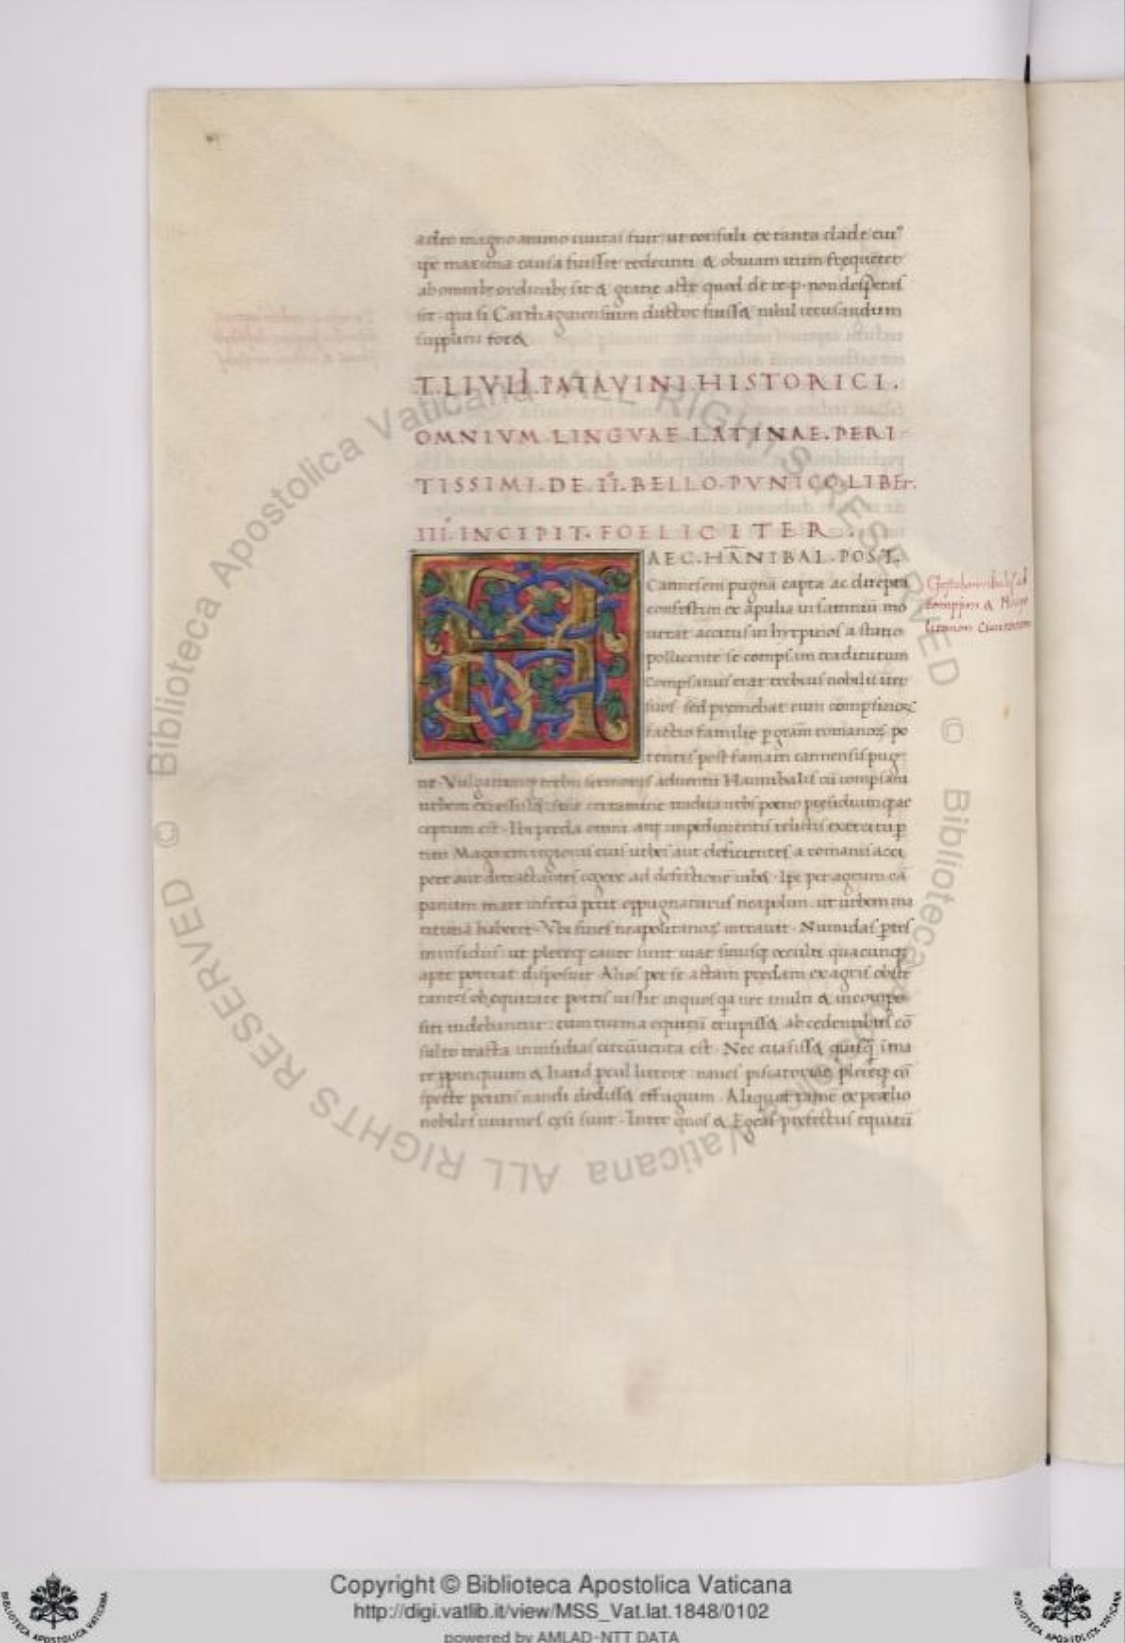 adeo magno animo ciuitas fuit ut consuli ex tanta clade cuiꝰ
ipe maxima causa fuisset redeunti & obuiam itum frequēter
ab omnibꝫ ordinibꝫ sit & gratie acte quod de re·p·non desperas
set·qui si Carthaginensium ductor fuiss& nihil recusandum
supplicii for&
T.LIVII.PATAVINI.HISTORICI.
OMNIVM.LINGVAE.LATINAE.PERI
TISSIMI.DE.II.BELLO.PVNICO.LIBEr.
III.INCIPIT.FOELICITER.
HAEC.HĀNIBAL.POST.
Cannensem pugnā capta ac direpta
confestim ex apulia in samniū mo
uerat accitus in hyrpinos a statio
pollicente se compsam traditurum
Compsanus erat trebius nobilis iter
suos sed premebat eum compsinoꝝ
factio familie p gratiam romanoꝝ po
tentis post famam cannensis pug
ne·Vulgatumqꝫ trebii sermonis aduentū Hannibalis cū compsani
urbem
ceptum est·Ibi preda omni atqꝫ impedimentis relictis exercitu p
tito Magonem regionis eius urbes aut deficientes a romanis acci
pere aut detractantes cogere ad defectionē iub&·Ipe per agrum cā
panum mare inferū petit oppugnaturus neapolim·ut urbem ma
ritimā haberet·Vbi fines neapolitanoꝝ intrauit·Numidas ptes
in insidiis·ut plereqꝫ caue sunt uiae sinusqꝫ occulti quacunqꝫ
apte poterat disposuit Alios pre se actam predam ex agris osten
tantes obequitare portis iussit in quos qa nec multi & incompo
siti uidebantur·cum turma equitū erupiss& ab cedentibus cō
sulto tracta in insidias circūuenta est·Nec euasiss& quisqꝫ ī ma
re ppinquum & haud pcul littore·naues piscatoriae plereqꝫ cō
specte peritis nandi dediss& effugium·Aliquot tamē eo prælio
nobiles iuuenes cesi sunt·Inter quos & Egeas prefectus equitū
Copyright © Biblioteca Apostolica Vaticana
http://digi.vatlib.it/view/MSS_Vat.lat.1848/0102
powered by AMLAD-NTT DATA